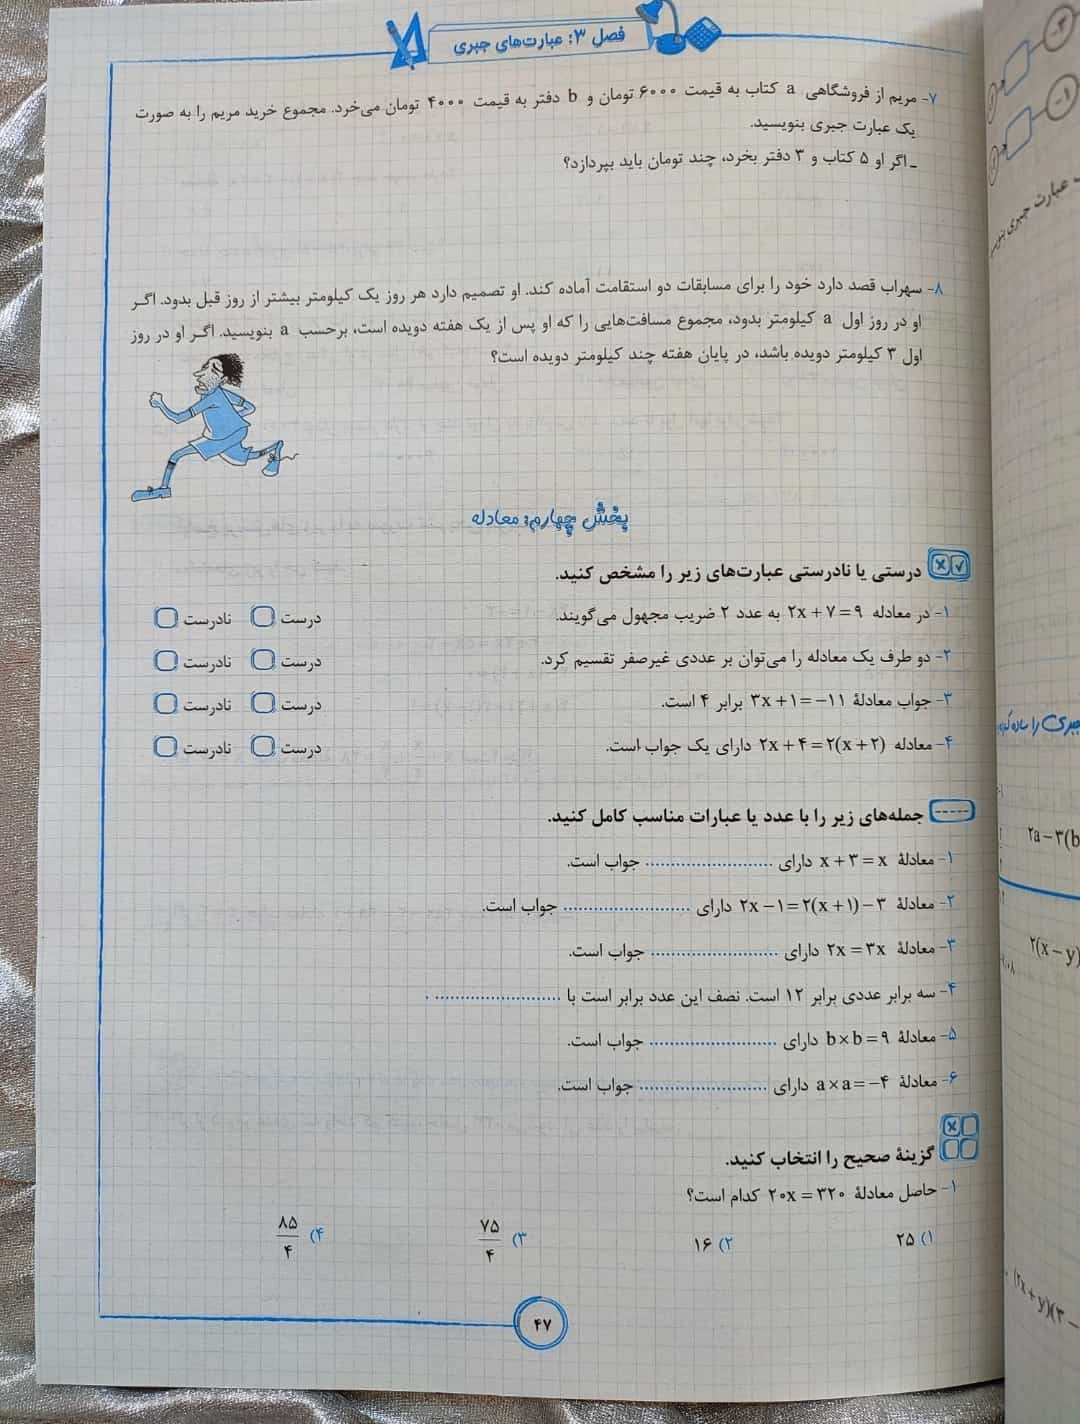 فصل ۳: عبارت‌های جبری
۷- مریم از فروشگاهی a کتاب به قیمت ۶۰۰۰ تومان و b دفتر به قیمت ۴۰۰۰ تومان می‌خرد. مجموع خرید مریم را به صورت
یک عبارت جبری بنویسید.
ـ اگر او ۵ کتاب و ۳ دفتر بخرد، چند تومان باید بپردازد؟
۸- سهراب قصد دارد خود را برای مسابقات دو استقامت آماده کند. او تصمیم دارد هر روز یک کیلومتر بیشتر از روز قبل بدود. اگر
او در روز اول a کیلومتر بدود، مجموع مسافت‌هایی را که او پس از یک هفته دویده است، برحسب a بنویسید. اگر او در روز
اول ۳ کیلومتر دویده باشد، در پایان هفته چند کیلومتر دویده است؟
بخش چهارم: معادله
درستی یا نادرستی عبارت‌های زیر را مشخص کنید.
۱- در معادله ۲x + ۷ = ۹ به عدد ۲ ضریب مجهول می‌گویند. درست نادرست
۲- دو طرف یک معادله را می‌توان بر عددی غیرصفر تقسیم کرد. درست نادرست
۳- جواب معادلهٔ ۳x + ۱ = -۱۱ برابر ۴ است. درست نادرست
۴- معادله ۲x + ۴ = ۲(x + ۲) دارای یک جواب است. درست نادرست
جمله‌های زیر را با عدد یا عبارات مناسب کامل کنید.
۱- معادلهٔ x + ۳ = x دارای ........................ جواب است.
۲- معادلهٔ ۲x - ۱ = ۲(x + ۱) - ۳ دارای ........................ جواب است.
۳- معادلهٔ ۲x = ۳x دارای ........................ جواب است.
۴- سه برابر عددی برابر ۱۲ است. نصف این عدد برابر است با ........................ .
۵- معادلهٔ b × b = ۹ دارای ........................ جواب است.
۶- معادلهٔ a × a = -۴ دارای ........................ جواب است.
گزینهٔ صحیح را انتخاب کنید.
۱- حاصل معادلهٔ ۲۰x = ۳۲۰ کدام است؟
۱) ۲۵ ۲) ۱۶ ۳) ۷۵/۴ ۴) ۸۵/۴
۴۷
عبارت جبری
جبری را ساده
۲a - ۳(b
۲(x - y)
(۲x + y)(۳ -